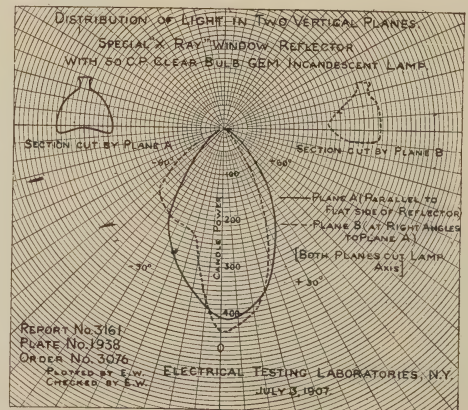 DISTRIBUTION OF LIGHT IN TWO VERTICAL PLANES.
SPECIAL "X RAY" WINDOW REFLECTOR
WITH 50 C.P. CLEAR BULB GEM INCANDESCENT LAMP.
SECTION CUT BY PLANE A
SECTION CUT BY PLANE B
-60°
+60°
100
CANDLE POWER
PLANE A (PARALLEL TO
FLAT SIDE OF REFLECTOR)
200
PLANE B (AT RIGHT ANGLES
TO PLANE A)
[BOTH PLANES CUT LAMP
AXIS]
300
-30°
+30°
400
0
REPORT No. 3161
PLATE No. 1938
ORDER No. 3076
PLOTTED BY E.W.
CHECKED BY E.W.
ELECTRICAL TESTING LABORATORIES, N.Y.
JULY 3, 1907.